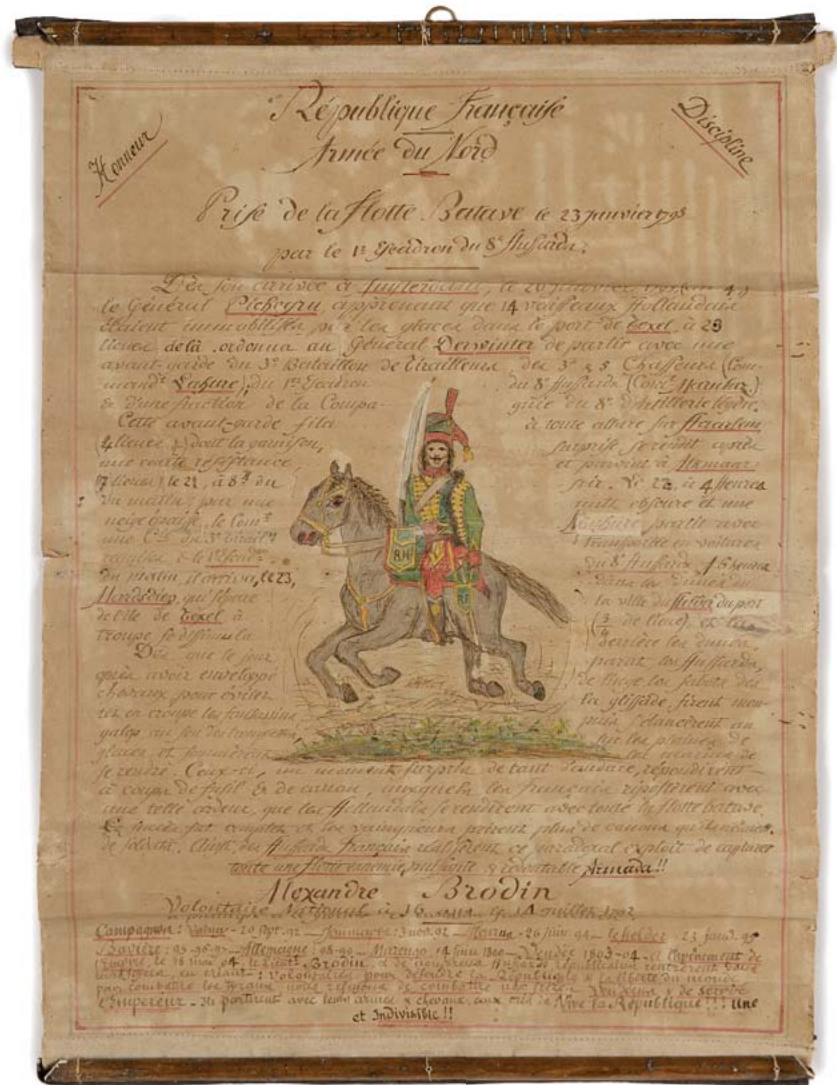 République Française
Honneur
Discipline
Armée du Nord
Prise de la flotte Batave le 23 janvier 1795
par le 1er Escadron du 8e Hussards.
Dès son arrivée à Amsterdam, le 20 janvier
le Général Pichegru, apprenant que 14 vaisseaux hollandais
étaient immobilisés par les glaces dans le port de Texel, à 23
lieues de là, ordonna au Général Dewinter de partir avec une
avant-garde du 3e Bataillon de Tirailleurs, des 3e & 5 Chasseurs (Com-
mandt Lahure), du 1er Escadron du 8e Hussards
& d'une fraction de la Compa- gnie du 8e d'Artillerie légère.
Cette avant-garde fila à toute allure sur Haarlem
(4 lieues ½) dont la garnison, surprise se rendit après
une courte résistance, et parvint à Alkmaar
(7 lieues) le 21, à 8h du soir. Le 22, à 4 heures
du matin; par une nuit obscure et une
neige épaisse, le Comt Lahure partit avec
une Cie du 3e Tiraillrs transportée en voitures
du 8e Hussards
du matin il arriva, le 23, dans les dunes du
Marsdiep, qui sépare la ville du Helder du port
de l'île de Texel à de lieue), et la
troupe se dissimula derrière les dunes.
Dès que le jour parut les Hussards,
après avoir enveloppé de linge les sabots des
chevaux pour éviter la glissade, firent mon-
ter en croupe les fantassins, puis s'élancèrent au
galop au son des trompettes sur les plaines de
glaces et
se rendre. Ceux-ci, un moment surpris de tant d'audace, répondirent
à coups de fusil & de canon, auxquels les français ripostèrent avec
une telle ardeur, que les Hollandais se rendirent avec toute la flotte batave.
Le succès fut complet et les vainqueurs prirent plus de canons qu'ils n'étaient
de soldats. Ainsi, des Hussards français réalisèrent ce paradoxal exploit de capturer
toute une flotte ennemie, puissante & redoutable Armada!!
Alexandre Brodin
Volontaire National à 16 ans
Campagnes: Valmy - 20 sept. 92 - Jemmapes: - Fleurus - 26 juin 94 - le helder - 23 janv. 95
Bavière: - Allemagne: - Marengo 14 juin 1800 - Vendée 1803-04 - et l'avènement de
l'Empire, le 18 mai 04 Brodin, & de nombreux hussards républicains rentrèrent
en criant: Volontaires pour défendre la République & la liberté du monde
pour combattre les tyrans, nous refusons de combattre nos frères Vendéens & de servir
l'Empereur - Ils partirent avec leurs armes & chevaux, aux cris de Vive la République!!! Une
et Indivisible!!